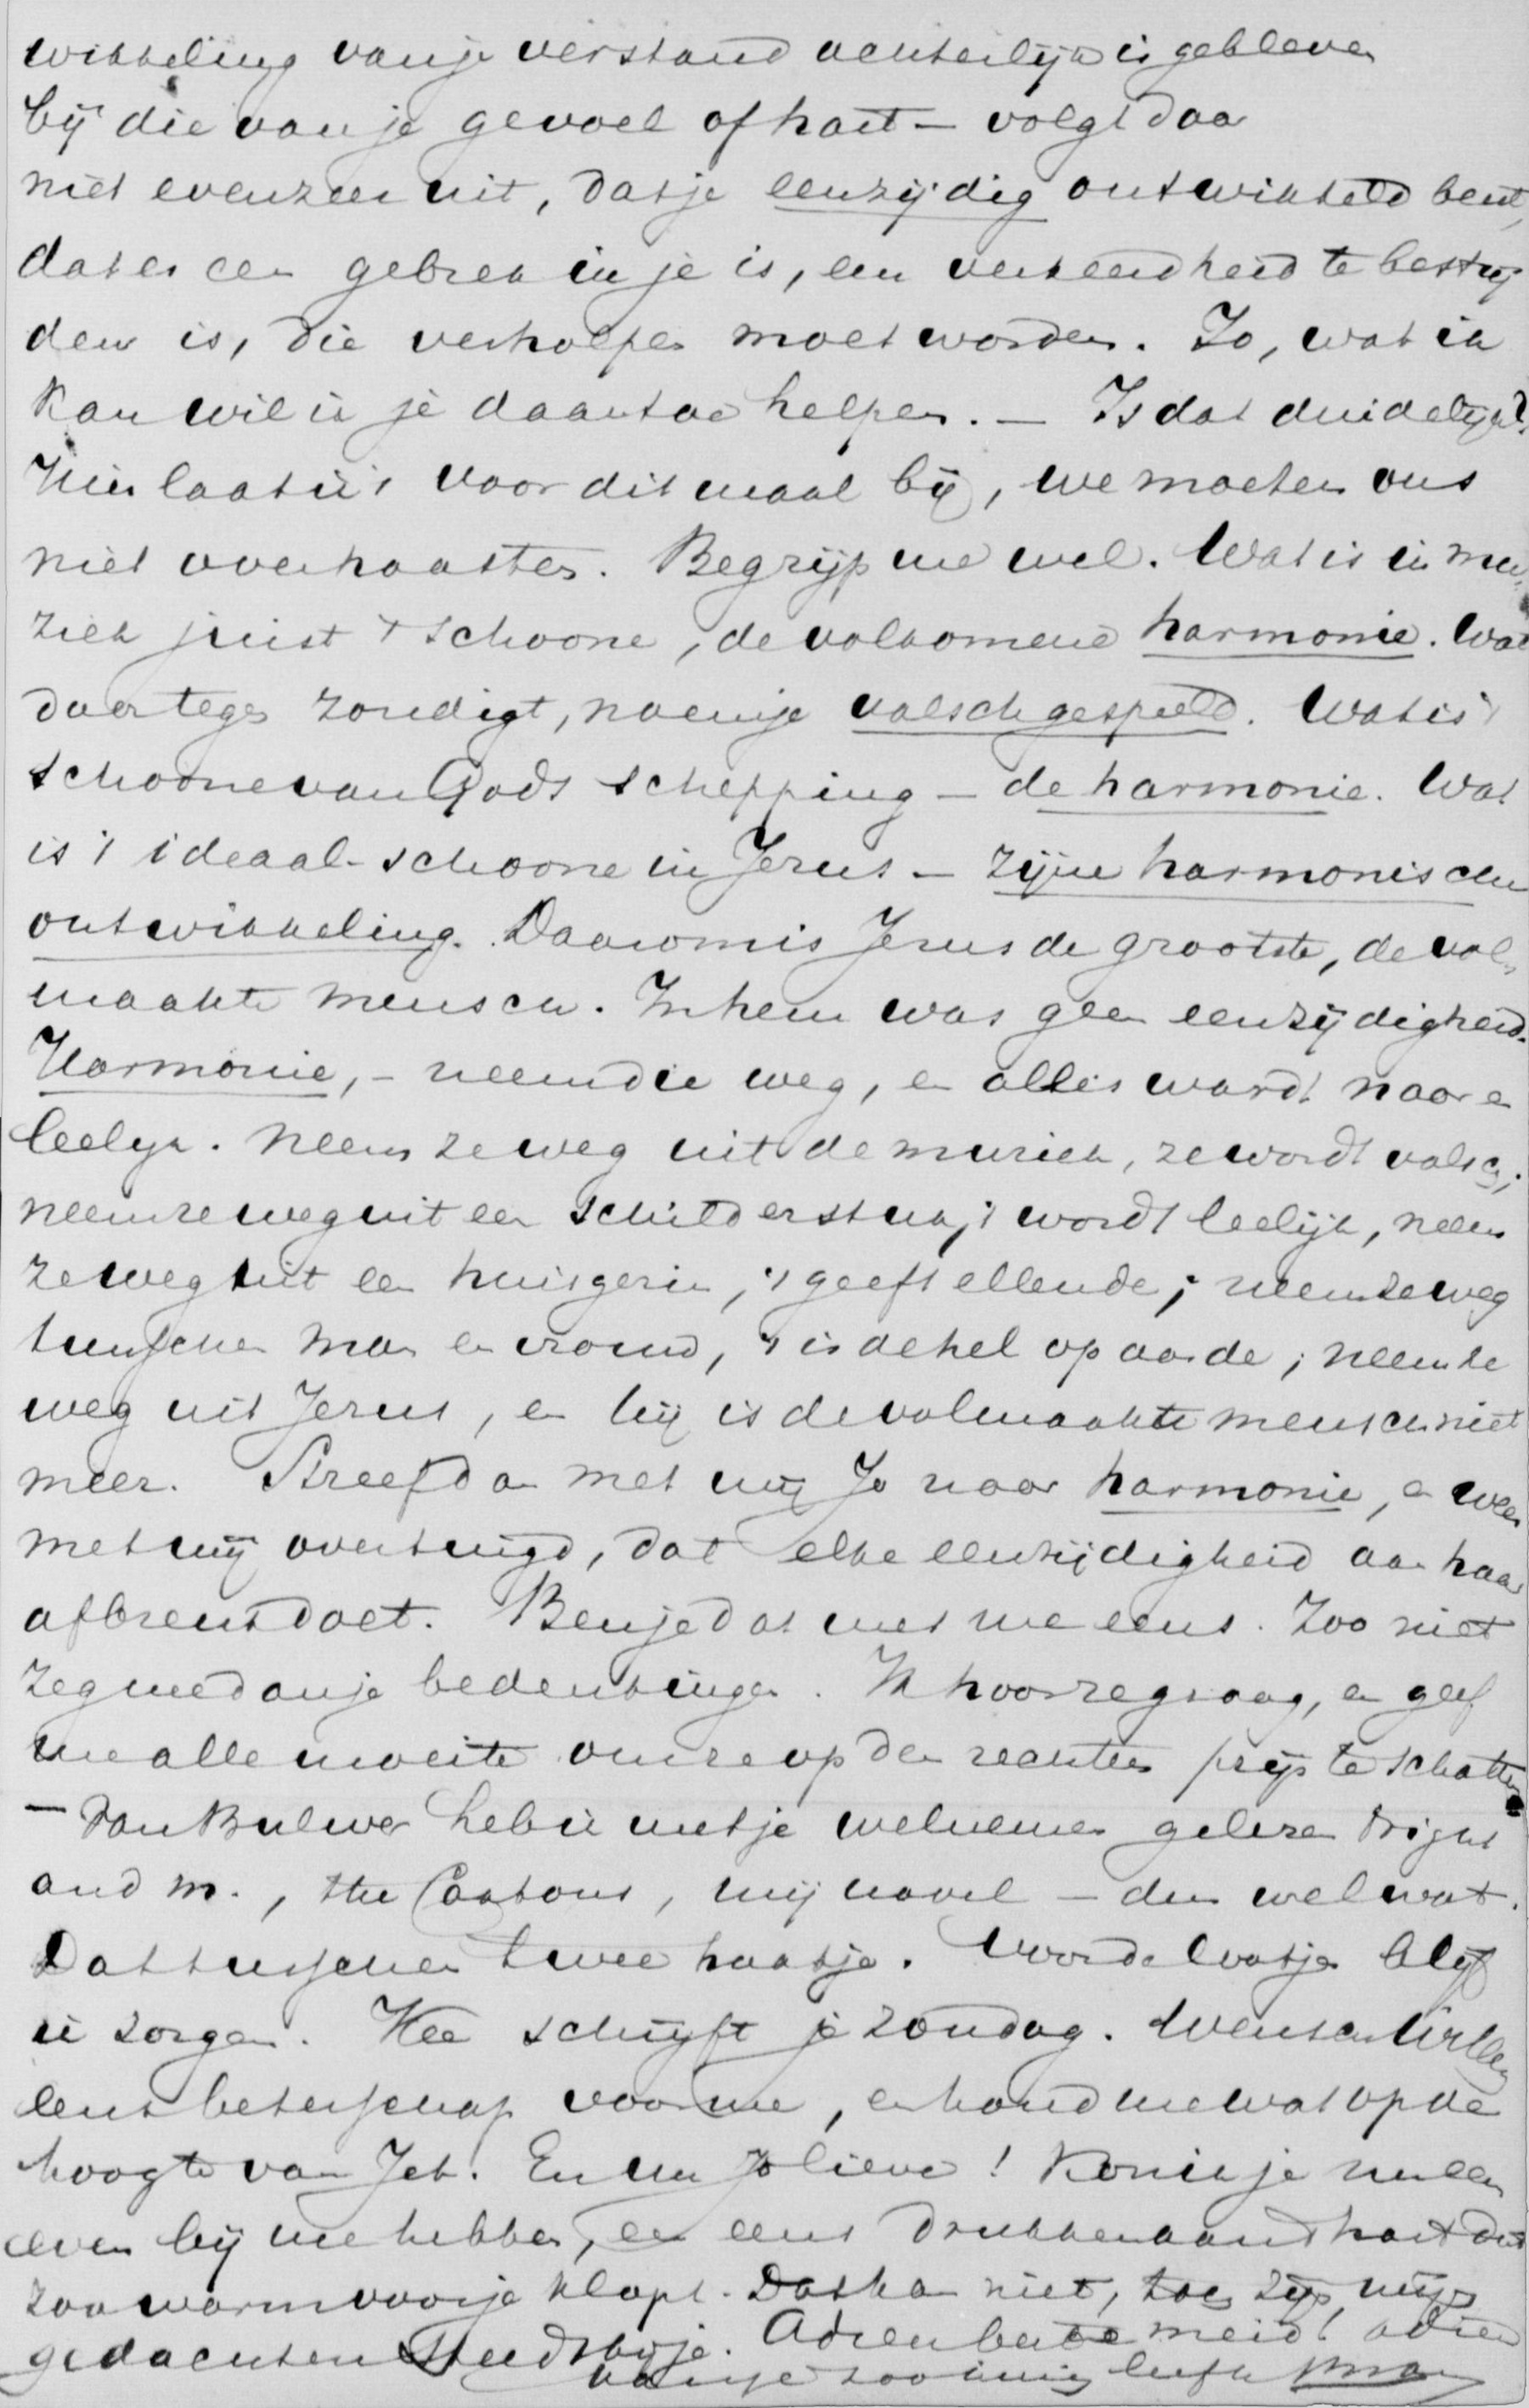 wikkeling van je verstand achterlijk is gebleven
bij die van je gevoel of hart – volgt daar
niet evenzeer uit, dat je eenzijdig ontwikkeld bent,
dat er een gebrek in je is, een verkeerdheid te bestrij
den is, die verholpen moet worden. Jo, wat ik
kan wil ik je daartoe helpen. – Is dat duidelijk?
Hier laat ik 't voor ditmaal bij, we moeten ons
niet overhaasten. Begrijp me wel. Wat is in mu
ziek juist 't schoone, de volkomene harmonie. Wat
daartegen zondigt, noem je valsch gespeeld. Wat is 't
schoone van Gods schepping – de harmonie. Wat
is 't ideaal-schoone in Jezus – zijne harmonische
ontwikkeling. Daarom is Jezus de grootste, de vol
maakte mensch. In hem was geen eenzijdigheid.
Harmonie, – neem die weg, en alles wordt naar en
leelijk. Neem ze weg uit de muziek, ze wordt valsch;
neem ze weg uit een schilderstuk, 't wordt leelijk, neem
ze weg uit een huisgezin, 't geeft ellende; neem ze weg
tusschen man en vrouw, 't is de hel op aarde; neem ze
weg uit Jezus, en hij is de volmaakte mensch niet
meer. Streef dan met mij Jo naar harmonie, en wees
met mij overtuigd, dat elke eenzijdigheid aan haar
afbreuk doet. Ben je dat met me eens. Zoo niet
zeg me dan je bedenkingen. Ik hoor ze graag, en geef
me alle moeite om ze op den rechten prijs te schatten
– Van Bulwer heb ik met je welnemen gelezen Night
and M., the Caxtons, my novel – dus wel wat.
Dat tusschen twee haakjes. Voor de
ik zorgen. Hoe schrijft je zondag. Wensch
eens beterschap voor me, en houd me wat op de
hoogte van Jeh. En nu Jo lieve! Kon ik je nu een
even bij me hebben, en eens drukken aan 't hart dat
zoo warm voor je klopt. Dat kan niet, toch zijn mijn
gedachten steeds bij je. Adieu beste meid! adieu
van je zoo innig liefh.